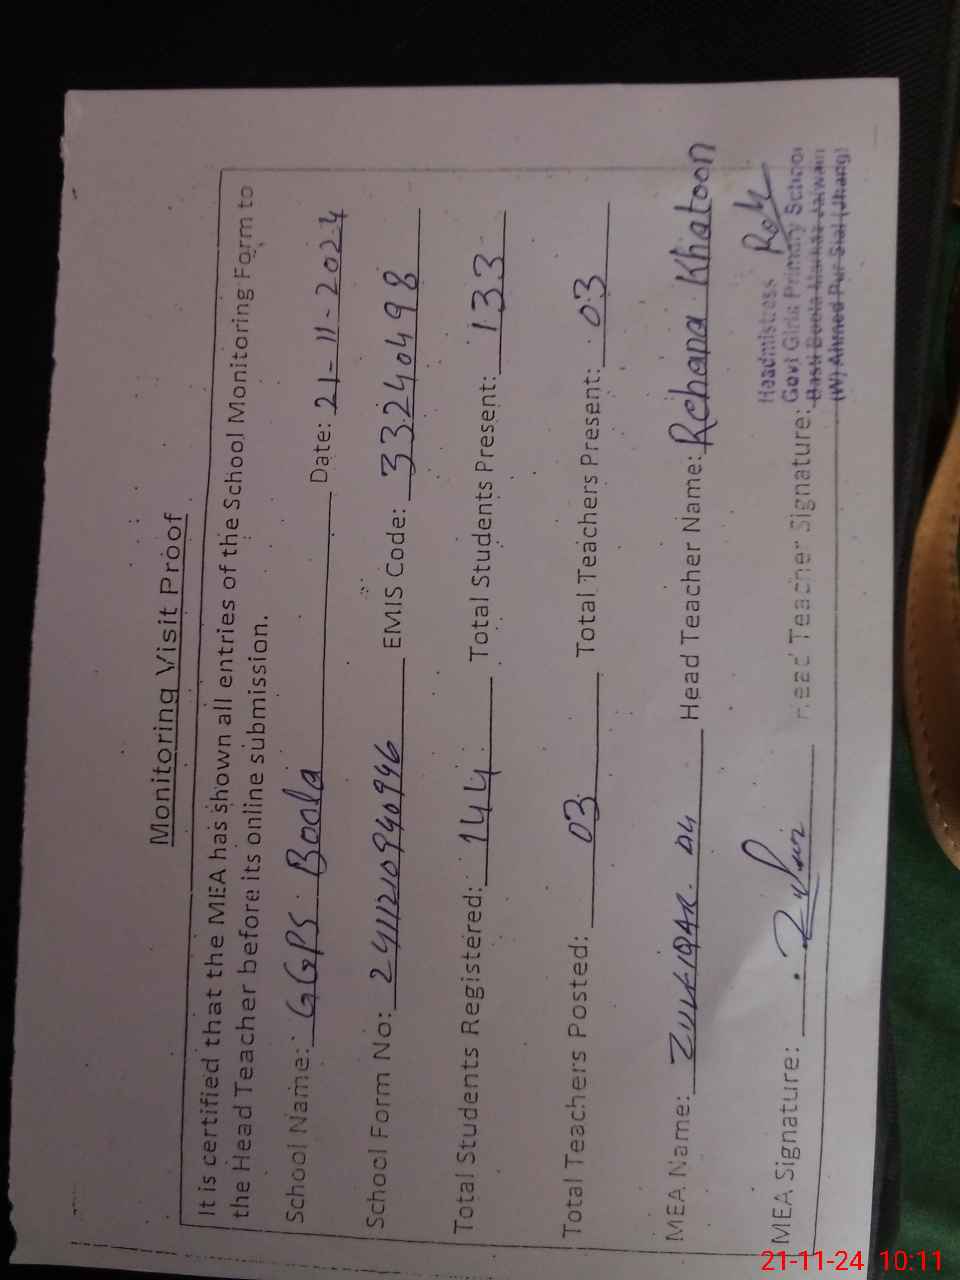 Monitoring Visit Proof
It is certified that the MEA has shown all entries of the School Monitoring Form to
the Head Teacher before its online submission.
School Name: GGPS Boola Date: 21-11-2024
School Form No: 241121094094946 EMIS Code: 33240498
Total Students Registered: 144 Total Students Present: 133
Total Teachers Posted: 03 Total Teachers Present: 03
MEA Name: Zulfiqar Ali Head Teacher Name: Rehana Khatoon
MEA Signature: Head Teacher Signature:
Headmistress
Govt Girls Primary School
Basti Boola Markaz Jalwain
(W) Ahmed Pur Sial (Jhang)
21-11-24 10:11